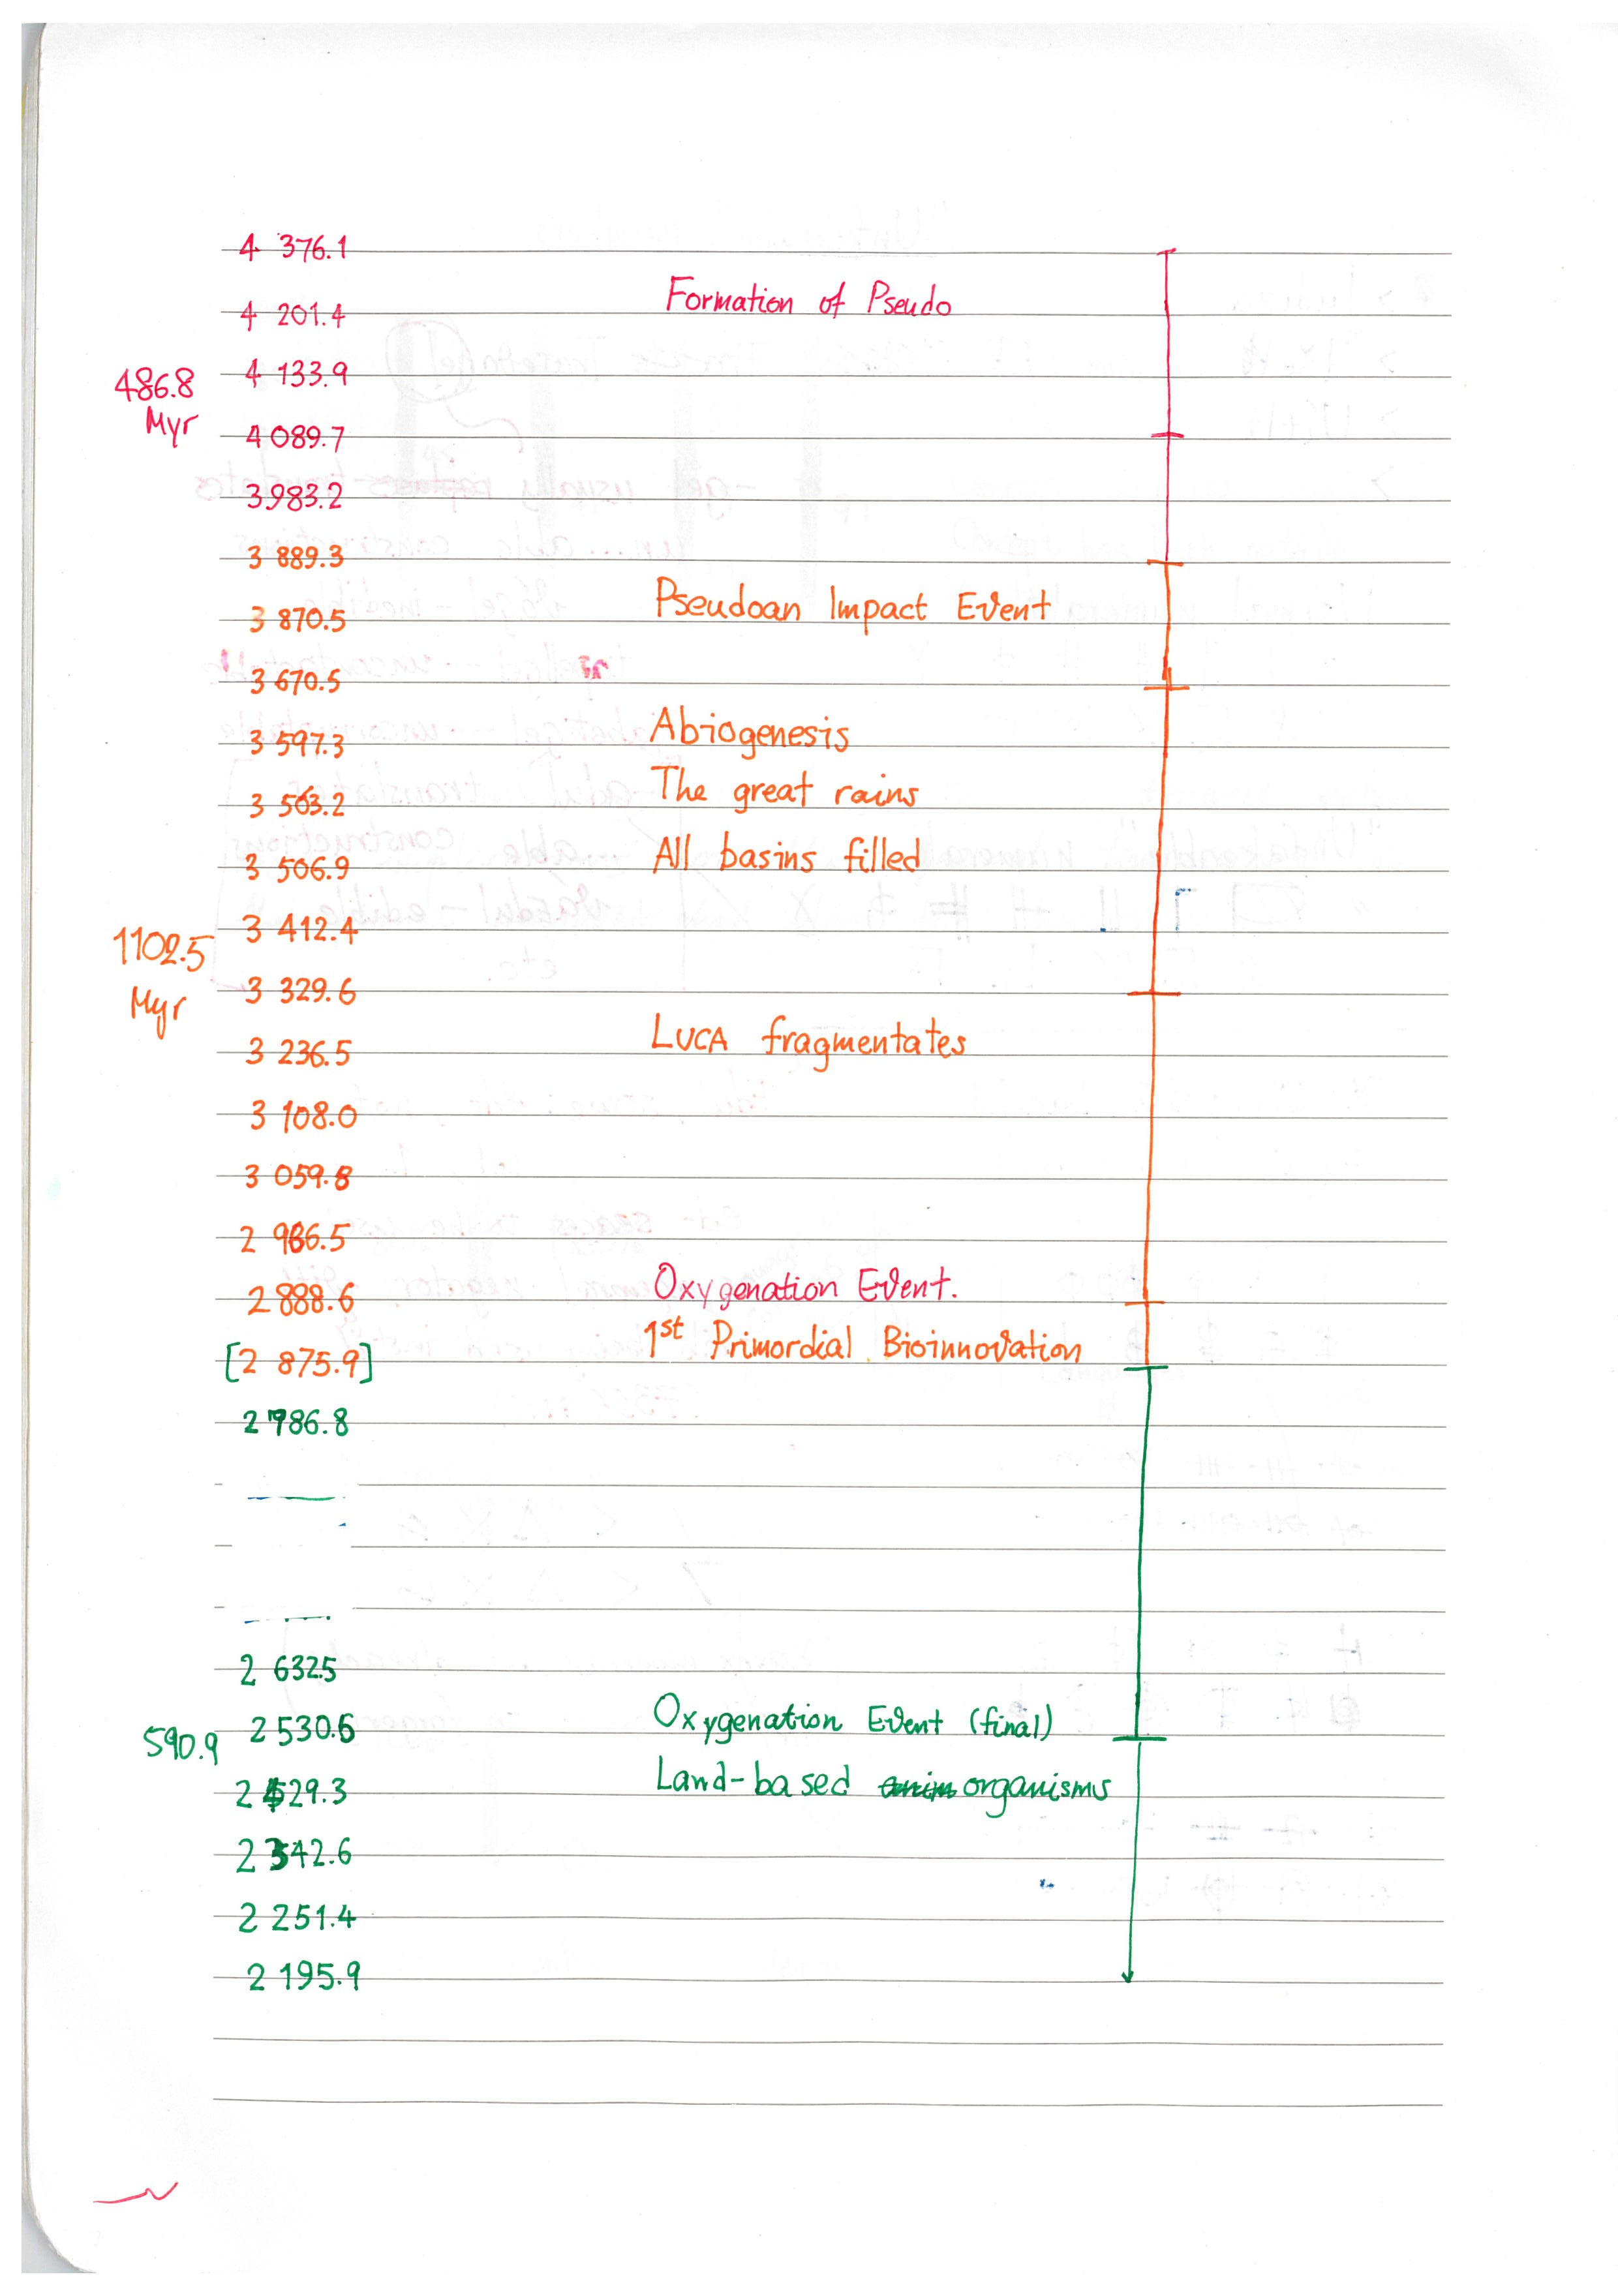 4 376.1
Formation of Pseudo
4 201.4
486.8
Myr
4 133.9
4 089.7
3 983.2
3 889.3
Pseudoan Impact Event
3 870.5
3 670.5
Abiogenesis
3 597.3
The great rains
3 563.2
All basins filled
3 506.9
3 412.4
1102.5
Myr
3 329.6
LUCA fragmentates
3 236.5
3 108.0
3 059.8
Oxygenation Event.
2 888.6
1st Primordial Bioinnovation
[2 875.9]
2 786.8
2 632.5
Oxygenation Event (final)
590.9
2 530.6
Land-based organisms
2 429.3
2 342.6
2 251.4
2 195.9